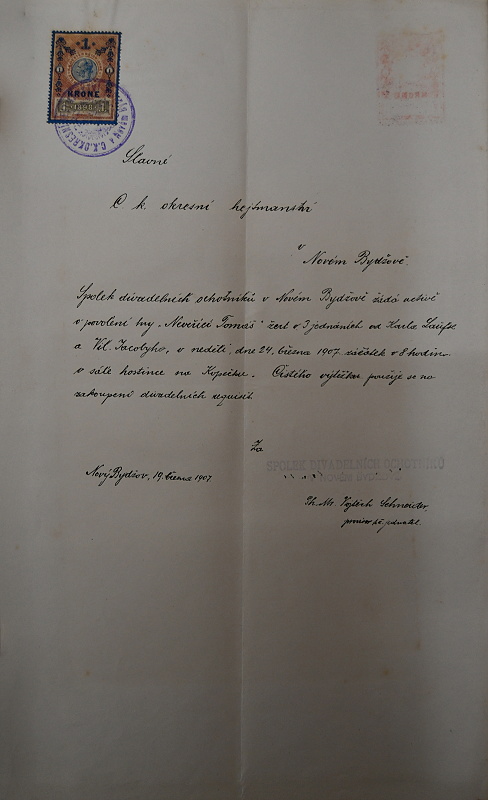 1
KRONE
1898
C.K. OKRESN
Slavné
C k. okresní hejtmanství
v
Novém Bydžově.
Spolek divadelních ochotníků v Novém Bydžově žádá uctivě
o povolení hry „Nevěřící Tomáš" žert v 3 jednáních od Karla Laufse
a Vil. Jacobyho, v neděli, dne 24. března 1907. začátek v 8 hodin
v sále hostince na Kopečku. Čistého výtěžku použije se na
zakoupení divadelních requisit.
Za
SPOLEK DIVADELNÍCH OCHOTNÍKŮ
V NOVÉM BYDŽOVĚ
Nový Bydžov, 19. března 1907
Ph. Mr. Vojtěch Schneider,
jednatel.